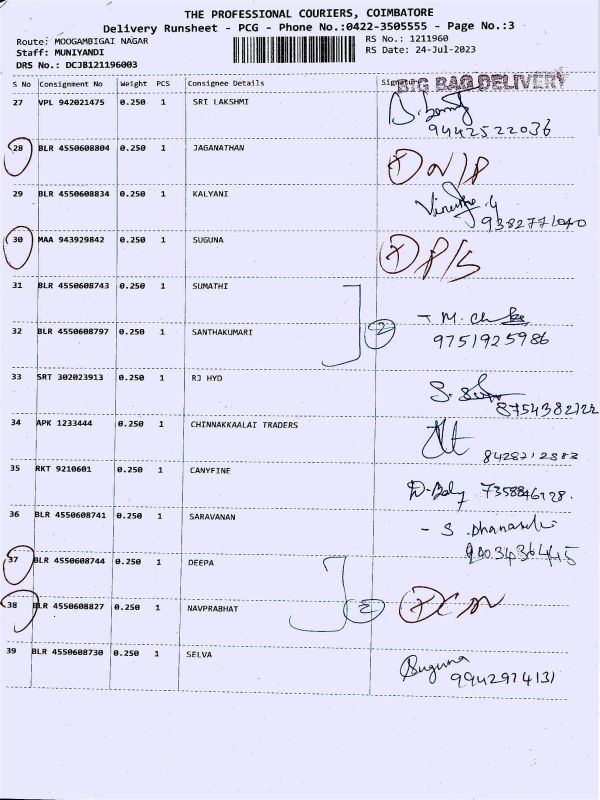 THE PROFESSIONAL COURIERS, COIMBATORE
Delivery Runsheet - PCG - Phone No.:0422-3505555 - Page No.:3
Route: MOOGAMBIGAI NAGAR RS No.: 1211960
Staff: MUNIYANDI RS Date: 24-Jul-2023
DRS No.: DCJB121196003
S No Consignment No Weight PCS Consignee Details Signature
BIG BAG DELIVERY
27 VPL 942021475 0.250 1 SRI LAKSHMI
9442522036
28 BLR 4550608804 0.250 1 JAGANATHAN
29 BLR 4550608834 0.250 1 KALYANI
9382771040
30 MAA 943929842 0.250 1 SUGUNA
31 BLR 4550608743 0.250 1 SUMATHI
32 BLR 4550608797 0.250 1 SANTHAKUMARI 2
9751925986
33 SRT 302023913 0.250 1 RJ HYD
34 APK 1233444 0.250 1 CHINNAKKAALAI TRADERS
35 RKT 9210601 0.250 1 CANYFINE
36 BLR 4550608741 0.250 1 SARAVANAN
37 BLR 4550608744 0.250 1 DEEPA
38 BLR 4550608827 0.250 1 NAVPRABHAT 2
39 BLR 4550608730 0.250 1 SELVA Suguna
9942974131